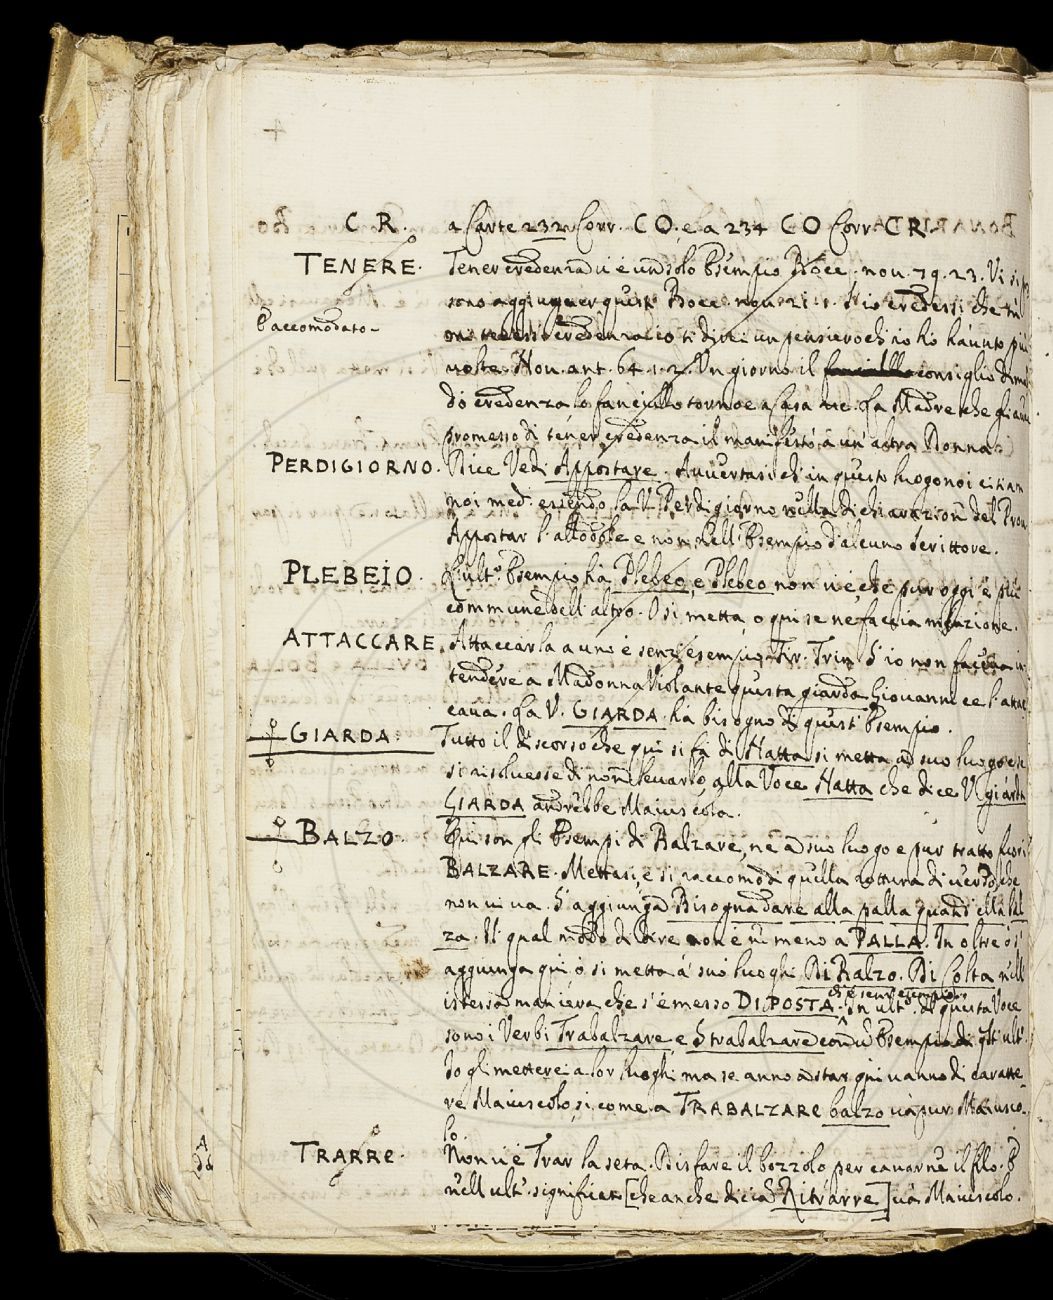 C R. a Carte 232 Corr. C O, e a 234 C O Corr C R
TENERE. Tener credenza vi è un solo Esempio Bocc. nov. 79. 23. Vi si
sono aggiugner questi Bocc. nov. 21. S'io credessi che tu
È accomodato
mi tenessi credenza io ti direi un pensiero ch'io ho havuto più
volte. Nov. ant. 64. 1. 2. Un giorno il consiglio
di credenza lo fanciullo torno e a Casa ec. La Madre che gli
promesso di tener credenza il manifestò a un'altra Donna
PERDIGIORNO. Dice Vedi Appostare. Avvertasi ch'in questo luogo noi citiam
noi med. essendo la V. Perdigiorno nella dichiarazion del Prov.
Appostar l'allodole e non nell'Esempio d'alcuno Scrittore.
PLEBEIO. L'ult.º Esempio ha Plebeo, e Plebeo non v'è, che pur oggi è più
commune dell'altro. O si metta, o qui se ne faccia menzione.
ATTACCARE. Attaccarla a uno è senz'esempio. Fir. Trin. S'io non faceva in
tendere a Madonna Violante questa giarda Giovanni ce l'attac
cava. La V. GIARDA. ha bisogno di questi Esempio.
GIARDA. Tutto il discorso che qui si fa di Natta si metta ad suo luogo e se
si risolvesse di non levarlo, alla Voce Natta che dice V. giarda
GIARDA andrebbe Maiuscola.
BALZO. Qui son gli Esempi di Balzare, ne ad suo luogo e pur tratto fuori
BALZARE. Mettasi, e si raccomodi quella rottura di verso, che
non vi va. S'aggiunga Bisogna dare alla palla quand'ella bal
za. Il qual modo di dire non è ne meno a PALLA. In oltre o si
aggiunga qui o si metta a' suoi luoghi Di Balzo. Di Colta nell'
ch'è senz'esempio.
istessa maniera che s'è messo DI POSTA. In ult.º di questa Voce
sono i Verbi Trabalzare, e Strabalzare con un Esempio di gli ult.
Io gli metterei a lor luoghi ma se anno a star qui vanno di caratte
re Maiuscolo, si come a TRABALZARE balzo va pur Maiusco
lo.
TRARRE. Non v'è Trar la seta. Disfare il bozzolo per cavarne il filo. E
nell'ult.º signific. [che anche diciam Ritrarre] va Maiuscolo.